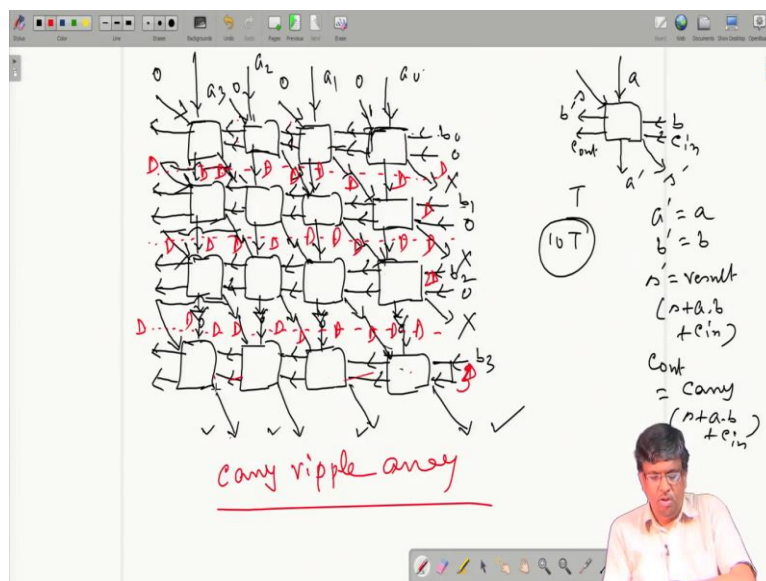 Stylus Color Line Eraser Backgrounds Undo Redo Pages Previous Next Erase Board Web Documents Show Desktop
0 a3 0 a2 0 a1 0 a0
b0
0
D D D D D D D D X
b1
D
0
D D D D D D D X
b2
2D
0
D D D D D D D D X
b3
3D
carry ripple array
a
s
b'
b
Cout
Cin
a'
s'
T
10T
a' = a
b' = b
s' = result
(s+a.b
+Cin)
Cout
= carry
(s+a.b
+Cin)